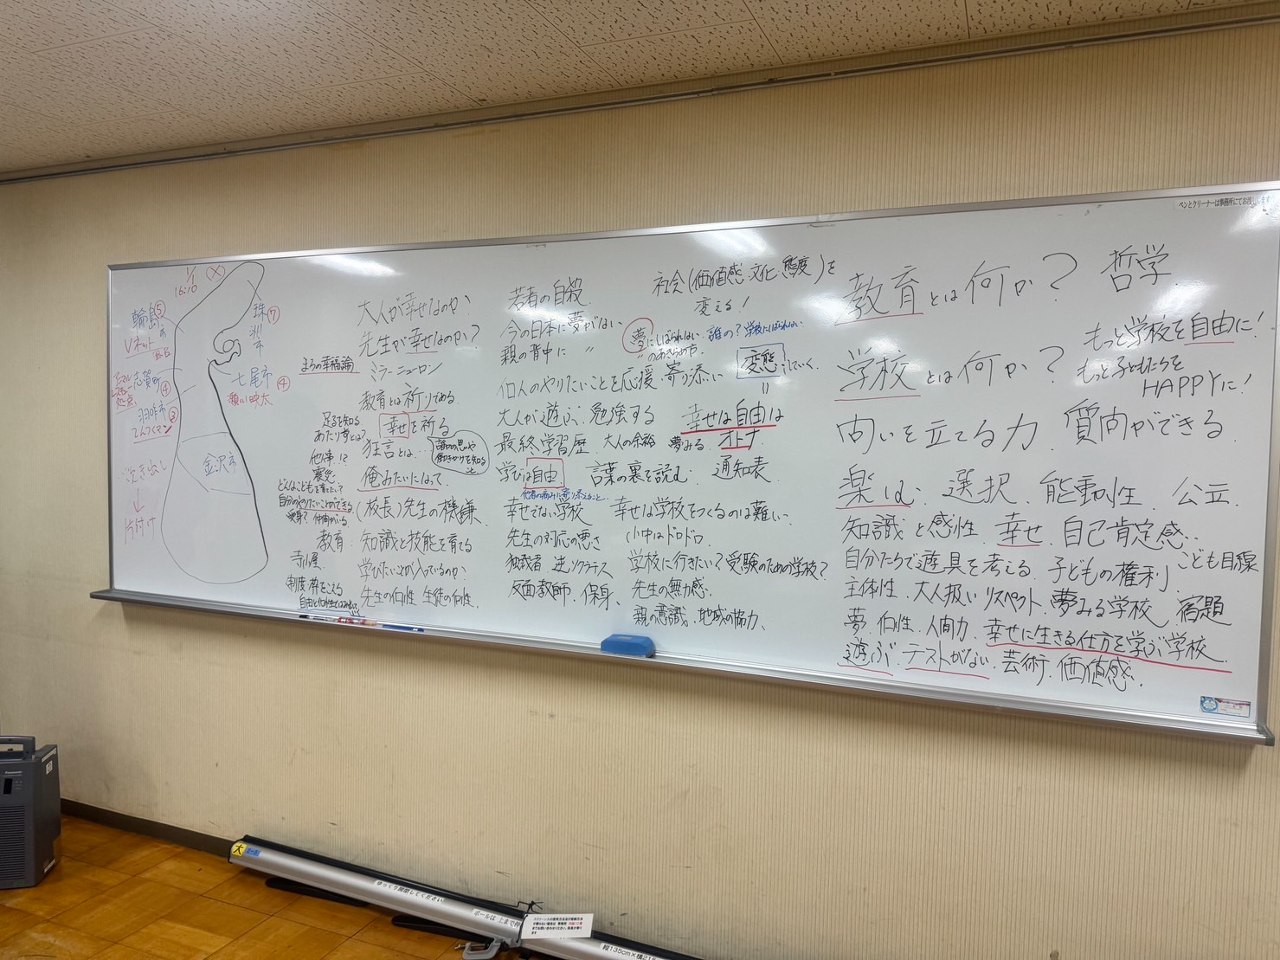 ペンとクリーナーは事務所にてお渡しします
1/1
16:10
輪島⑤
市
珠洲市
⑦
Vネット
七尾市④
志賀町
④
羽咋市
てんつくマン
金沢市
炊き出し
↓
片付け
大人が幸せなのか
先生が幸せなのか?
まろの幸福論
ミラーニューロン
教育とは祈りである
足るを知る
幸せを祈る
あたり前とは?
狂言とは
他事!?
震災
俺みたいになって
自分のやりたいことができる
(校長)先生の機嫌
教育:知識と技能を育てる
寺小屋
学びたいことが入っているのか
制度・枠をこえる
先生の個性 生徒の個性
若者の自殺
今の日本に夢がない
親の背中に 〃
個人のやりたいことを応援 寄り添い
大人が遊ぶ 勉強する
最終学習歴 大人の余裕 夢みる オトナ
学びは自由 言葉の裏を読む 通知表
幸せでない学校 幸せな学校をつくるのは難しい
先生の対応の悪さ 小中はドロドロ
独裁者 逆ソクラテス 学校に行きたい?受験のための学校?
反面教師 保身 先生の無力感
親の意識、地域の協力
社会(価値感・文化・態度)を
変える!
夢にしばられない 誰の?学校にしばられない
のあきらめ方
変態していく
॥
幸せは自由は
教育とは何か? 哲学
学校とは何か?
もっと学校を自由に!
もっと子どもたちを
HAPPYに!
問いを立てる力 質問ができる
楽しむ 選択 能動性 公立
知識と感性 幸せ 自己肯定感
自分たちで遊具を考える 子どもの権利 こども目線
主体性 大人扱い リスペクト 夢みる学校 宿題
夢 個性 人間力 幸せに生きる仕方を学ぶ学校
遊ぶ テストがない 芸術 価値感
Panasonic
大
ゆっくり開閉してください
ポールは上まで
縦135cm×横21